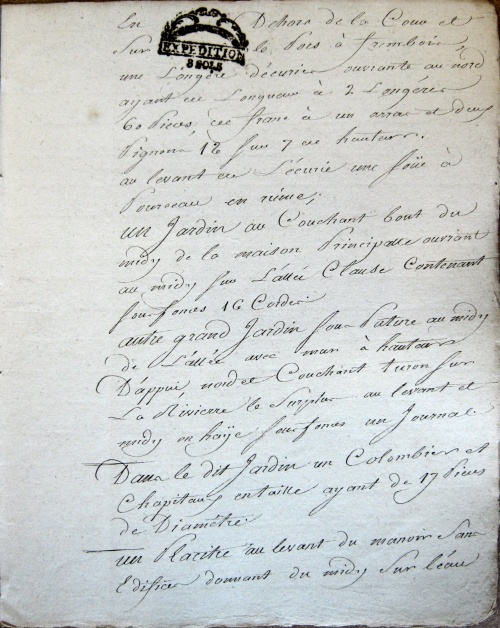 En Dehors de la Cour et
EXPEDITION
8 SOLS
Sur le
une Longère d'écurie ouvrante au nord
ayant de Longueur à 2 Longères
60 Pieds, de franc à un arras et deux
Pignons 12 sur 7 de hauteur.
au levant de L'écurie une soüe à
Pourceau en ruine;
un Jardin au Couchant bout du
midy de la maison Principalle ouvrant
au midy sur L'allée Clause Contenant
sous fonds 16 Cordes
autre grand Jardin sous Pature au midy
de L'allée avec mur à hauteur
D'appuÿ nord et Couchant sur
La Rivierre le Surplus au levant et
midy en haÿe sous fonds un Journal
Dans le dit Jardin un Colombier et
Chapitaux en taille ayant de 17 Pieds
de Diamétre
un Placitre au levant du manoir Sans
Edifice donnant du midy Sur l'eau